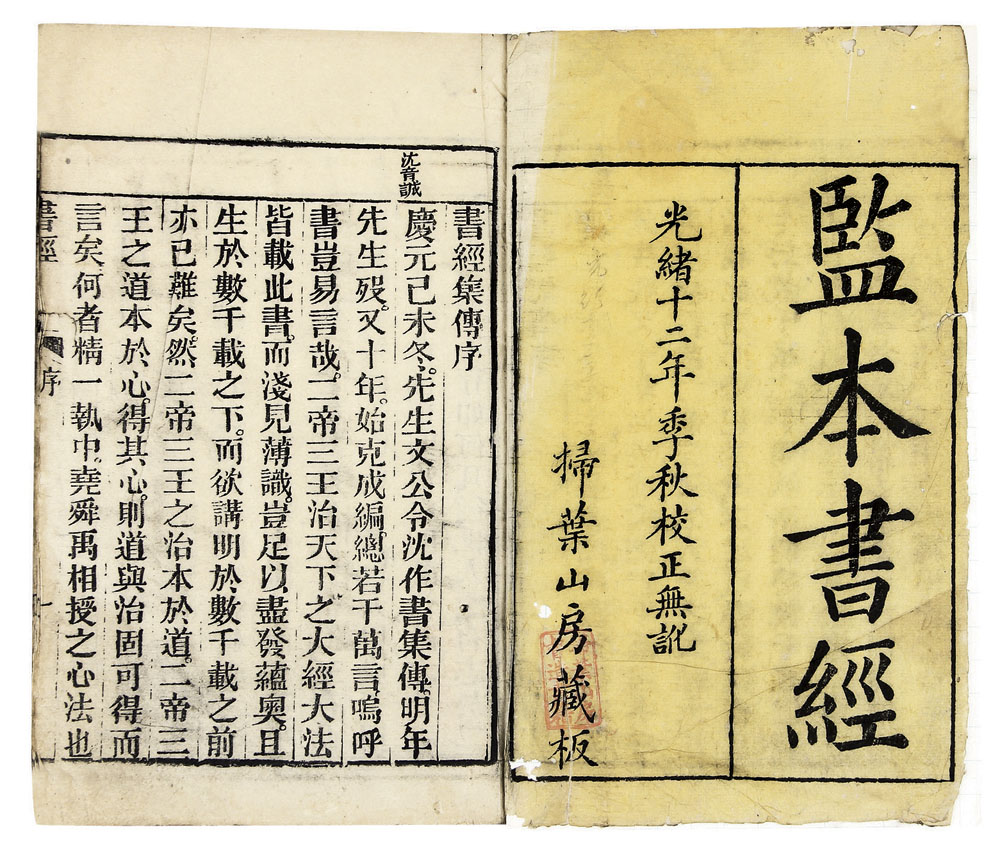 監本書經
光緒十二年季秋校正無訛
掃葉山房藏板
書經集傳序
沈音誠
慶元己未冬先生文公令沈作書集傳明年
先生歿又十年始克成編總若干萬言嗚呼
書豈易言哉二帝三王治天下之大經大法
皆載此書而淺見薄識豈足以盡發蘊奧且
生於數千載之下而欲講明於數千載之前
亦已難矣然二帝三王之治本於道二帝三
王之道本於心得其心則道與治固可得而
言矣何者精一執中堯舜禹相授之心法也
書經 序 一